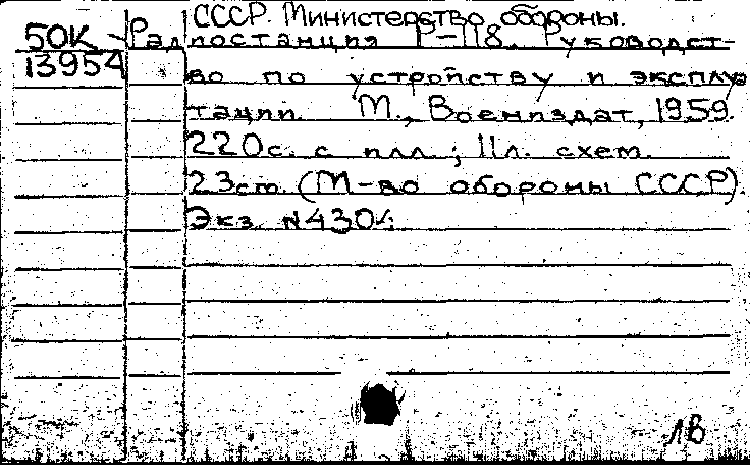 СССР. Министерство обороны.
50К - Радиостанция Р-118. Руководст-
13954 во по устройству и эксплуа
тации. М., Воениздат, 1959.
220с. с илл.; 11л. схем.
23см. (М-во обороны СССР).
Экз. №4304.
ЛВ